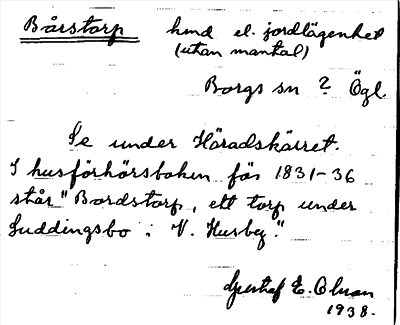 Bårstorp hmd el. jordlägenhet
(utan mantal)
Borgs sn ? Ögl.
Se under Häradskärret.
I husförhörsboken för 1831-36
står "Bordstorp, ett torp under
Luddingsbo i V. Husby."
Gustaf E. Olsson
1938.